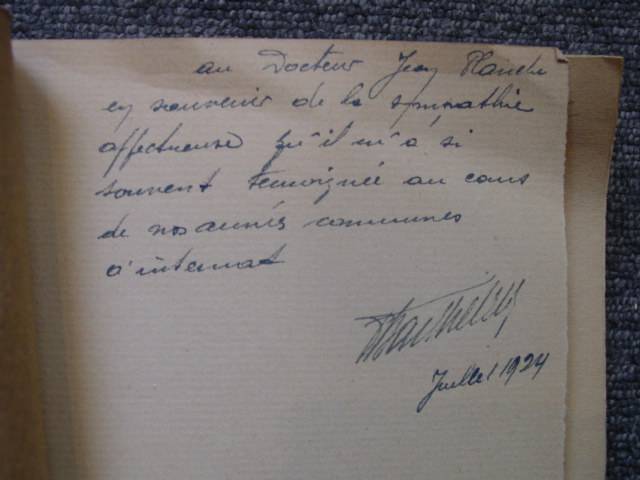 au Docteur Jean Planche
en souvenir de la sympathie
affectueuse qu'il m'a si
souvent temoignée au cours
de nos années communes
d'internat
Juillet 1924